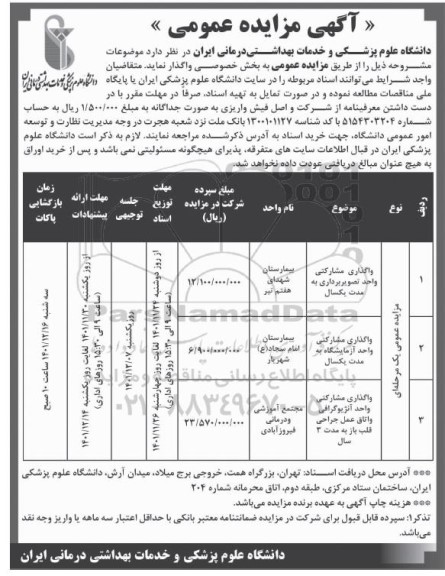 « آگهی مزایده عمومی »
دانشگاه علوم پزشکی و خدمات بهداشتی‌درمانی ایران
دانشگاه علوم پزشکی و خدمات بهداشتی‌درمانی ایران در نظر دارد موضوعات
مشروحه ذیل را از طریق مزایده عمومی به بخش خصوصی واگذار نماید. متقاضیان
واجد شرایط می‌توانند اسناد مربوطه را در سایت دانشگاه علوم پزشکی ایران یا پایگاه
ملی مناقصات مطالعه نموده و در صورت تمایل به تهیه اسناد، صرفاً در مهلت مقرر با در
دست داشتن معرفینامه از شرکت و اصل فیش واریزی به صورت جداگانه به مبلغ ۱/۵۰۰/۰۰۰ ریال به حساب
شماره ۵۱۵۴۳۰۳۲۰۴ با کد شناسه ۱۳۰۰۱۰۱۱۲۷ بانک ملت نزد شعبه هجرت در وجه مدیریت نظارت و توسعه
امور عمومی دانشگاه، جهت خرید اسناد به آدرس ذکرشده مراجعه نمایند. لازم به ذکر است دانشگاه علوم
پزشکی ایران در قبال اطلاعات سایت های متفرقه، پذیرای هیچگونه مسئولیتی نمی باشد و پس از خرید اوراق
به هیچ عنوان مبالغ دریافتی عودت داده نخواهد شد.
ردیف نوع موضوع نام واحد مبلغ سپرده شرکت در مزایده (ریال) مهلت توزیع اسناد جلسه توجیهی مهلت ارائه پیشنهادات زمان بازگشایی پاکات
۱ واگذاری مشارکتی واحد تصویربرداری به مدت یکسال بیمارستان شهدای هفتم تیر ۱۲/۱۰۰/۰۰۰/۰۰۰
۲ واگذاری مشارکتی واحد آزمایشگاه به مدت یکسال بیمارستان امام سجاد(ع) شهریار ۶/۹۰۰/۰۰۰/۰۰۰
۳ واگذاری مشارکتی واحد آنژیوگرافی واتاق عمل جراحی قلب باز به مدت ۳ سال مجتمع آموزشی ودرمانی فیروزآبادی ۲۳/۵۷۰/۰۰۰/۰۰۰
مزایده عمومی یک مرحله‌ای
از روز دوشنبه ۱۴۰۱/۱۱/۲۴ لغایت روز چهارشنبه ۱۴۰۱/۱۱/۲۶ (ساعت ۹ الی ۱۵:۳۰ روزهای اداری)
روز یکشنبه ۱۴۰۱/۱۲/۰۷
از روز یکشنبه ۱۴۰۱/۱۱/۳۰ لغایت روز یکشنبه ۱۴۰۱/۱۲/۱۴ (ساعت ۹ الی ۱۵:۳۰ روزهای اداری)
سه شنبه ۱۴۰۱/۱۲/۱۶ ساعت ۱۰ صبح
ParsNamadData
پایگاه اطلاع رسانی مناقصه و مزایده
۰۲۱-۸۸۳۴۹۶۷۰-۵
*** آدرس محل دریافت اسناد: تهران، بزرگراه همت، خروجی برج میلاد، میدان آرش، دانشگاه علوم پزشکی
ایران، ساختمان ستاد مرکزی، طبقه دوم، اتاق محرمانه شماره ۲۰۴
*** هزینه چاپ آگهی به عهده برنده مزایده می‌باشد.
تذکر۱: سپرده قابل قبول برای شرکت در مزایده ضمانتنامه معتبر بانکی با حداقل اعتبار سه ماهه یا واریز وجه نقد
می‌باشد.
دانشگاه علوم پزشکی و خدمات بهداشتی درمانی ایران